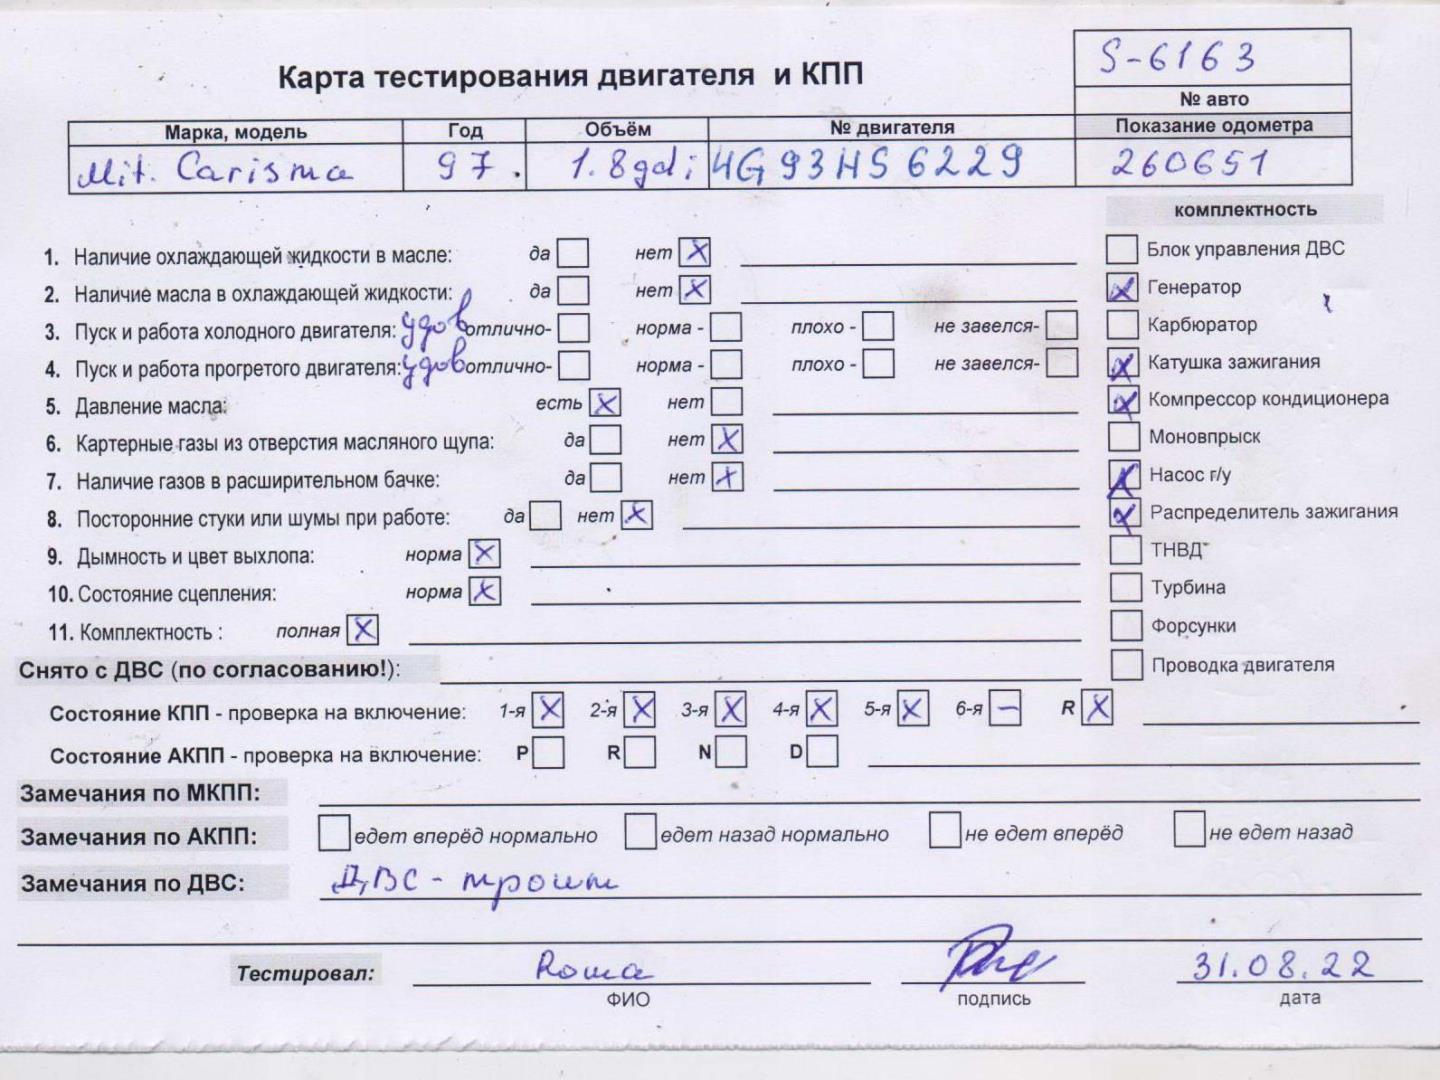 S-6163
Карта тестирования двигателя и КПП
№ авто
Марка, модель Год Объём № двигателя Показание одометра
Mit. Carisma 97. 1.8gdi 4G93HS6229 260651
комплектность
1. Наличие охлаждающей жидкости в масле: да нет X Блок управления ДВС
2. Наличие масла в охлаждающей жидкости: да нет X X Генератор
3. Пуск и работа холодного двигателя: удов отлично- норма - плохо - не завелся- Карбюратор
4. Пуск и работа прогретого двигателя: удов отлично- норма - плохо - не завелся- X Катушка зажигания
5. Давление масла: есть X нет X Компрессор кондиционера
6. Картерные газы из отверстия масляного щупа: да нет X Моновпрыск
7. Наличие газов в расширительном бачке: да нет X X Насос г/у
8. Посторонние стуки или шумы при работе: да нет X X Распределитель зажигания
9. Дымность и цвет выхлопа: норма X ТНВД
10. Состояние сцепления: норма X Турбина
11. Комплектность : полная X Форсунки
Снято с ДВС (по согласованию!): Проводка двигателя
Состояние КПП - проверка на включение: 1-я X 2-я X 3-я X 4-я X 5-я X 6-я – R X
Состояние АКПП - проверка на включение: P R N D
Замечания по МКПП:
Замечания по АКПП: едет вперёд нормально едет назад нормально не едет вперёд не едет назад
Замечания по ДВС: ДВС - троит
Тестировал: Рома 31.08.22
ФИО подпись дата